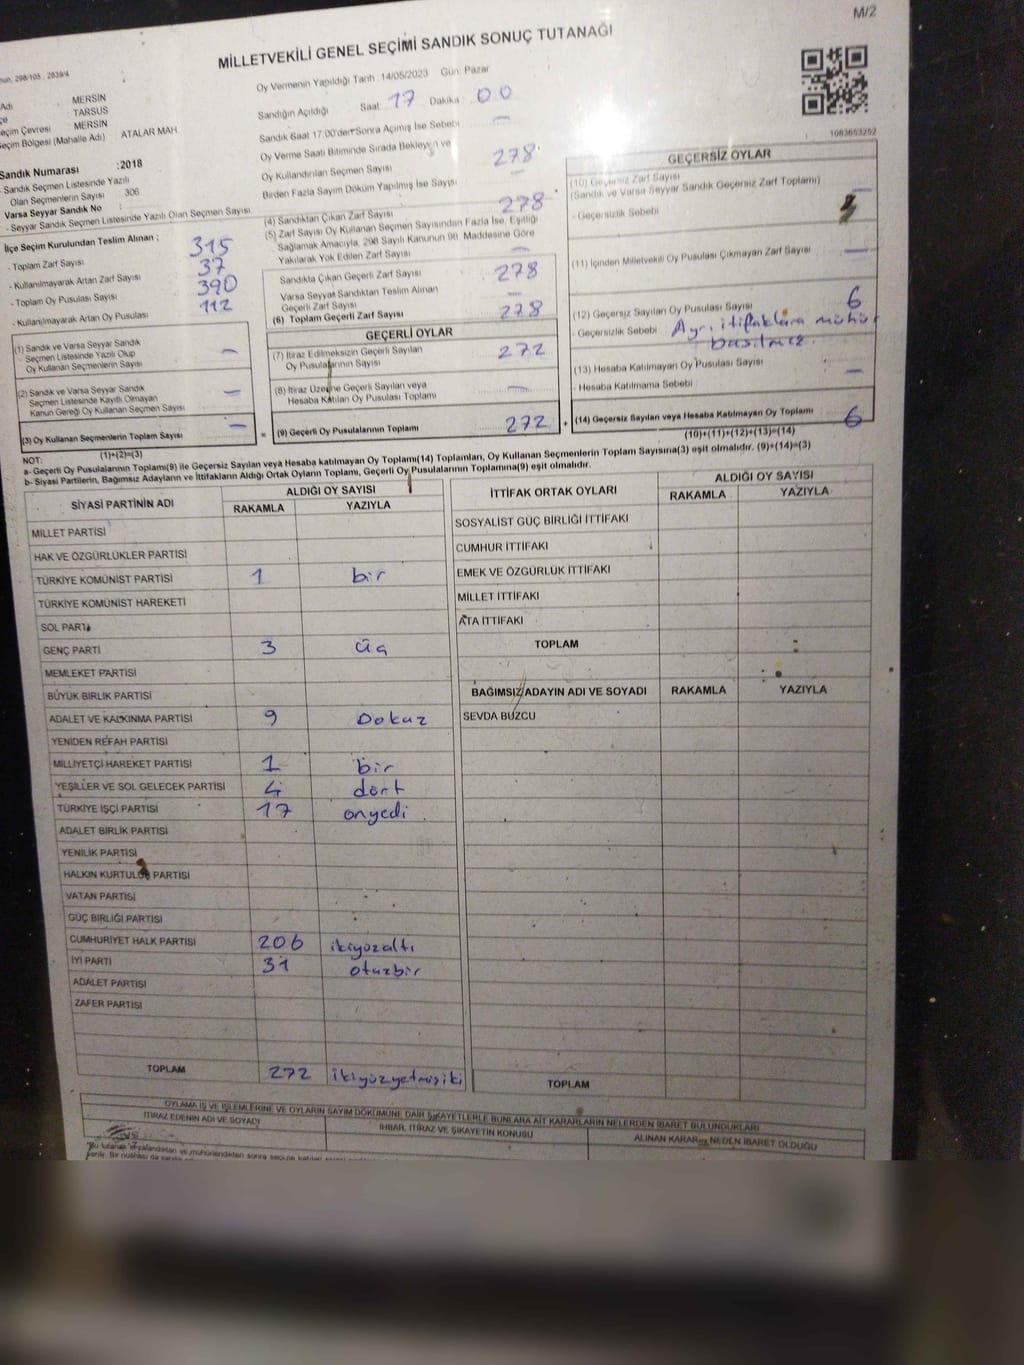 M/2
MİLLETVEKİLİ GENEL SEÇİMİ SANDIK SONUÇ TUTANAĞI
Oy Vermenin Yapıldığı Tarih :14/05/2023 Gün: Pazar
MERSİN
TARSUS
Seçim Çevresi MERSİN
Seçim Bölgesi (Mahalle Adı) ATALAR MAH
Sandık Numarası :2018
Sandık Seçmen Listesinde Yazılı
Olan Seçmenlerin Sayısı 306
Varsa Seyyar Sandık No :
- Seyyar Sandık Seçmen Listesinde Yazılı Olan Seçmen Sayısı
İlçe Seçim Kurulundan Teslim Alınan ;
- Toplam Zarf Sayısı 315
- Kullanılmayarak Artan Zarf Sayısı 37
- Toplam Oy Pusulası Sayısı 390
- Kullanılmayarak Artan Oy Pusulası 112
(1) Sandık ve Varsa Seyyar Sandık
Seçmen Listesinde Yazılı Olup
Oy Kullanan Seçmenlerin Sayısı —
(2) Sandık ve Varsa Seyyar Sandık
Seçmen Listesinde Kayıtlı Olmayan
Kanun Gereği Oy Kullanan Seçmen Sayısı —
(3) Oy Kullanan Seçmenlerin Toplam Sayısı —
(1)+(2)=(3)
Sandığın Açıldığı Saat 17 Dakika : 00
Sandık Saat 17:00'den Sonra Açımış İse Sebebi —
Oy Verme Saati Bitiminde Sırada Bekleyen ve
Oy Kullandırılan Seçmen Sayısı 278
Birden Fazla Sayım Döküm Yapılmış İse Sayısı —
(4) Sandıktan Çıkan Zarf Sayısı 278
(5) Zarf Sayısı Oy Kullanan Seçmen Sayısından Fazla İse, Eşitliği
Sağlamak Amacıyla, 298 Sayılı Kanunun 98. Maddesine Göre
Yakılarak Yok Edilen Zarf Sayısı —
Sandıkta Çıkan Geçerli Zarf Sayısı 278
Varsa Seyyar Sandıktan Teslim Alınan
Geçerli Zarf Sayısı —
(6) Toplam Geçerli Zarf Sayısı 278
GEÇERLİ OYLAR
(7) İtiraz Edilmeksizin Geçerli Sayılan
Oy Pusulalarının Sayısı 272
(8) İtiraz Üzerine Geçerli Sayılan veya
Hesaba Katılan Oy Pusulası Toplamı —
(9) Geçerli Oy Pusulalarının Toplamı 272
1083653252
GEÇERSİZ OYLAR
(10) Geçersiz Zarf Sayısı
(Sandık ve Varsa Seyyar Sandık Geçersiz Zarf Toplamı) —
- Geçersizlik Sebebi
(11) İçinden Milletvekili Oy Pusulası Çıkmayan Zarf Sayısı —
(12) Geçersiz Sayılan Oy Pusulası Sayısı 6
- Geçersizlik Sebebi Ayrı itifaklara mühür
basılmız.
(13) Hesaba Katılmayan Oy Pusulası Sayısı —
- Hesaba Katılmama Sebebi
(14) Geçersiz Sayılan veya Hesaba Katılmayan Oy Toplamı 6
(10)+(11)+(12)+(13)=(14)
NOT:
a- Geçerli Oy Pusulalarının Toplamı(9) ile Geçersiz Sayılan veya Hesaba katılmayan Oy Toplamı(14) Toplamları, Oy Kullanan Seçmenlerin Toplam Sayısına(3) eşit olmalıdır. (9)+(14)=(3)
b- Siyasi Partilerin, Bağımsız Adayların ve İttifakların Aldığı Ortak Oyların Toplamı, Geçerli Oy Pusulalarının Toplamına(9) eşit olmalıdır.
SİYASİ PARTİNİN ADI ALDIĞI OY SAYISI
RAKAMLA YAZIYLA
MİLLET PARTİSİ
HAK VE ÖZGÜRLÜKLER PARTİSİ
TÜRKİYE KOMÜNİST PARTİSİ 1 bir
TÜRKİYE KOMÜNİST HAREKETİ
SOL PARTİ
GENÇ PARTİ 3 üç
MEMLEKET PARTİSİ
BÜYÜK BİRLİK PARTİSİ
ADALET VE KALKINMA PARTİSİ 9 Dokuz
YENİDEN REFAH PARTİSİ
MİLLİYETÇİ HAREKET PARTİSİ 1 bir
YEŞİLLER VE SOL GELECEK PARTİSİ 4 dört
TÜRKİYE İŞÇİ PARTİSİ 17 onyedi
ADALET BİRLİK PARTİSİ
YENİLİK PARTİSİ
HALKIN KURTULUŞ PARTİSİ
VATAN PARTİSİ
GÜÇ BİRLİĞİ PARTİSİ
CUMHURİYET HALK PARTİSİ 206 ikiyüzaltı
İYİ PARTİ 31 otuzbir
ADALET PARTİSİ
ZAFER PARTİSİ
TOPLAM 272 ikiyüzyetmişiki
İTTİFAK ORTAK OYLARI ALDIĞI OY SAYISI
RAKAMLA YAZIYLA
SOSYALİST GÜÇ BİRLİĞİ İTTİFAKI
CUMHUR İTTİFAKI
EMEK VE ÖZGÜRLÜK İTTİFAKI
MİLLET İTTİFAKI
ATA İTTİFAKI
TOPLAM
BAĞIMSIZ ADAYIN ADI VE SOYADI RAKAMLA YAZIYLA
SEVDA BUZCU
TOPLAM
OYLAMA İŞ VE İŞLEMLERİNE VE OYLARIN SAYIM DÖKÜMÜNE DAİR ŞİKAYETLERLE BUNLARA AİT KARARLARIN NELERDEN İBARET BULUNDUKLARI
İTİRAZ EDENİN ADI VE SOYADI İHBAR, İTİRAZ VE ŞİKAYETİN KONUSU ALINAN KARARIN NEDEN İBARET OLDUĞU